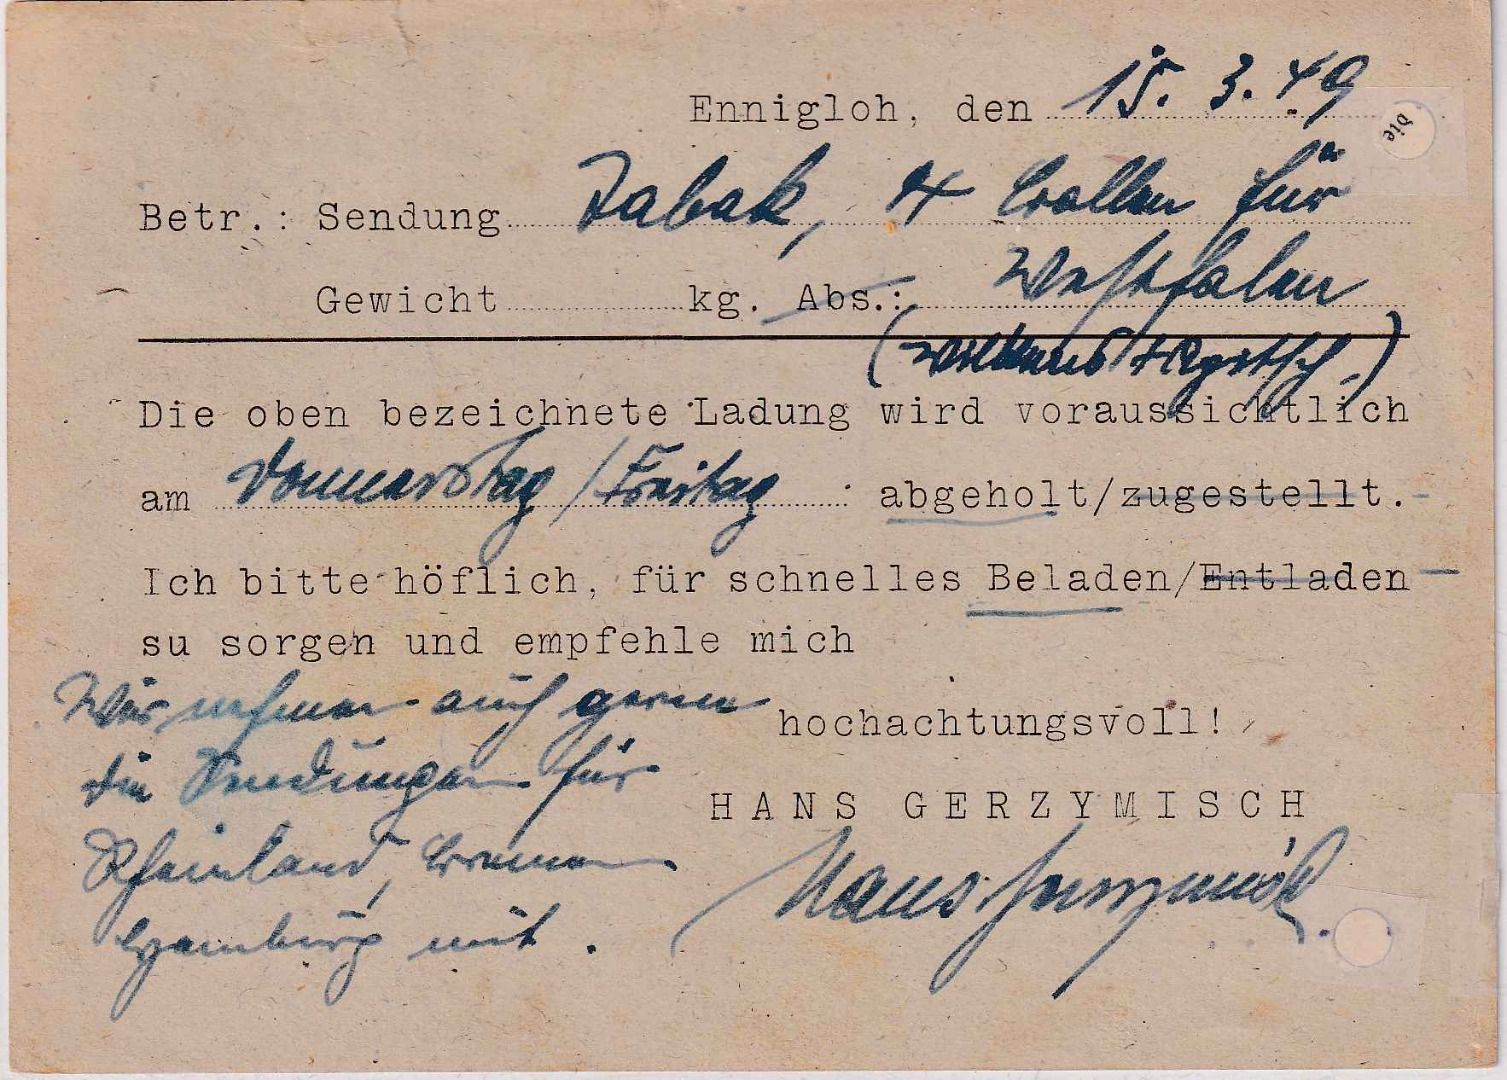 Ennigloh, den 15. 3. 49
die
Betr.: Sendung Tabak, 4 Crollen für
Gewicht kg. Abs.: Westfalen
(
Die oben bezeichnete Ladung wird voraussichtlich
am Donnerstag / Freitag : abgeholt/zugestellt.
Ich bitte höflich, für schnelles Beladen/Entladen
su sorgen und empfehle mich
Wir nehmen auch gerne
hochachtungsvoll!
die Sendungen für
HANS GERZYMISCH
Rheinland, Bremen
Hans Gerzymisch
Hamburg mit.